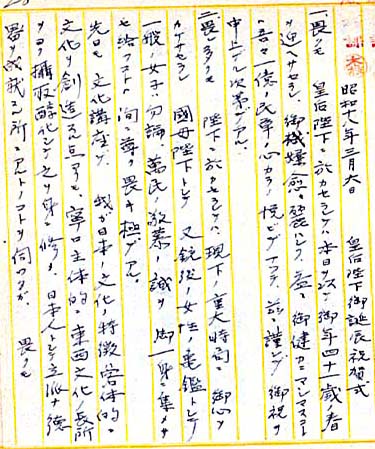 昭和十八年三月六日　皇后陛下御誕辰祝賀式
一、畏クモ　皇后陛下ニ於カセラレテハ本日ヲ以テ御年四十一歳ノ春
ヲ迎ヘサセラレ、御機嫌愈々麗ハシク、益々御健カニマシマスコト
ハ吾々一億ノ民草ノ心カラノ悦ビデアッテ、茲ニ謹ンデ御祝ヲ
申上ゲル次第デアル。
二、畏クモ　陛下ニ於カセラレテハ現下ノ重大時局ニ御心ヲ
セラレ　国母陛下トシテ　又銃後ノ女性ノ亀鑑トシテ
一般ノ女子ハ勿論、萬民ノ敬慕ノ誠ヲ御一身ニ集メサ
セ給フコトハ洵ニ尊ク畏キ極デアル。
先日モ文化講座デ　我ガ日本ノ文化ノ特徴ハ客体的ニ
文化ヲ創造スル点ヨリモ、寧ロ主体的ニ東西文化ノ長所
ヲ攝取醇化シテ之ヲ身ニ修メ、日本人トシテ立派ナ徳
器ヲ成就スル所ニアルトノコトヲ伺ッタガ、畏クモ